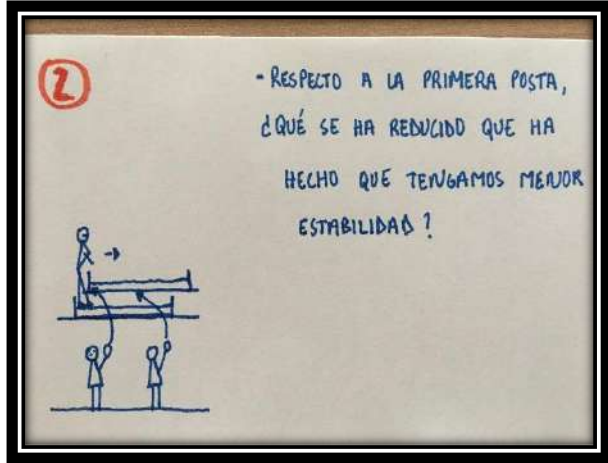 2
- RESPECTO A LA PRIMERA POSTA,
¿QUÉ SE HA REDUCIDO QUE HA
HECHO QUE TENGAMOS MENOR
ESTABILIDAD?